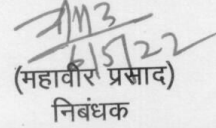 6/5/22
(महावीर प्रसाद)
निबंधक